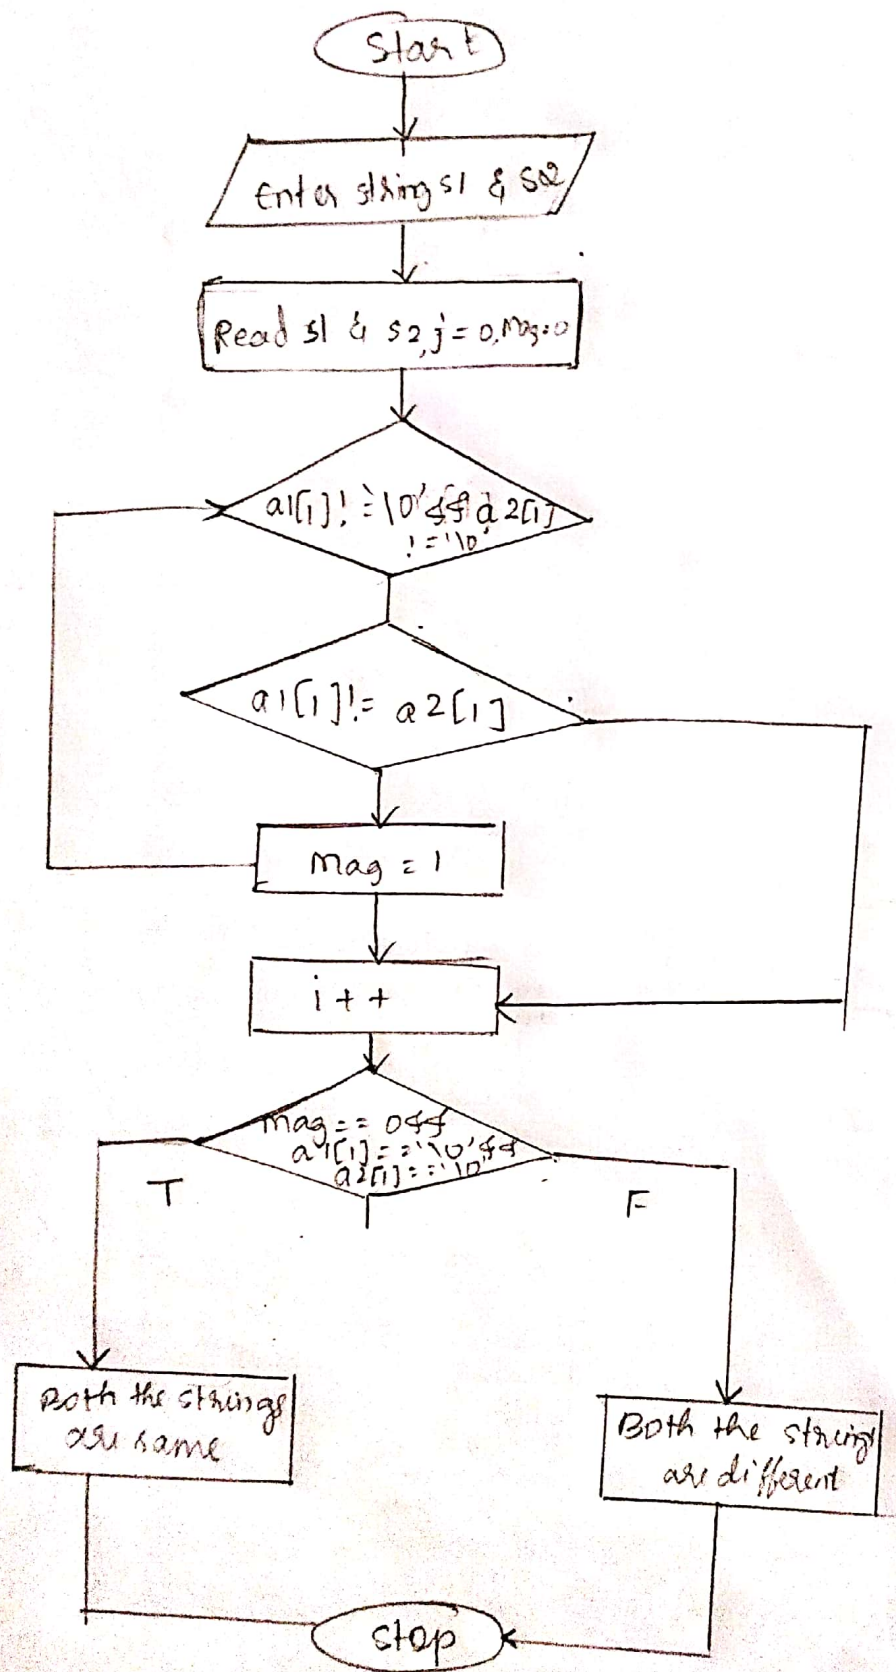 Start
Enter string s1 & s2
Read s1 & s2, j = 0, Mag=0
a1[i]! = '\0' && a2[i]
! = '\0'
a1[i]!= a2[i]
Mag = 1
i++
Mag == 0 &&
a1[i] == '\0' &&
a2[i] == '\0'
T
F
Both the strings
are same
Both the strings
are different
stop